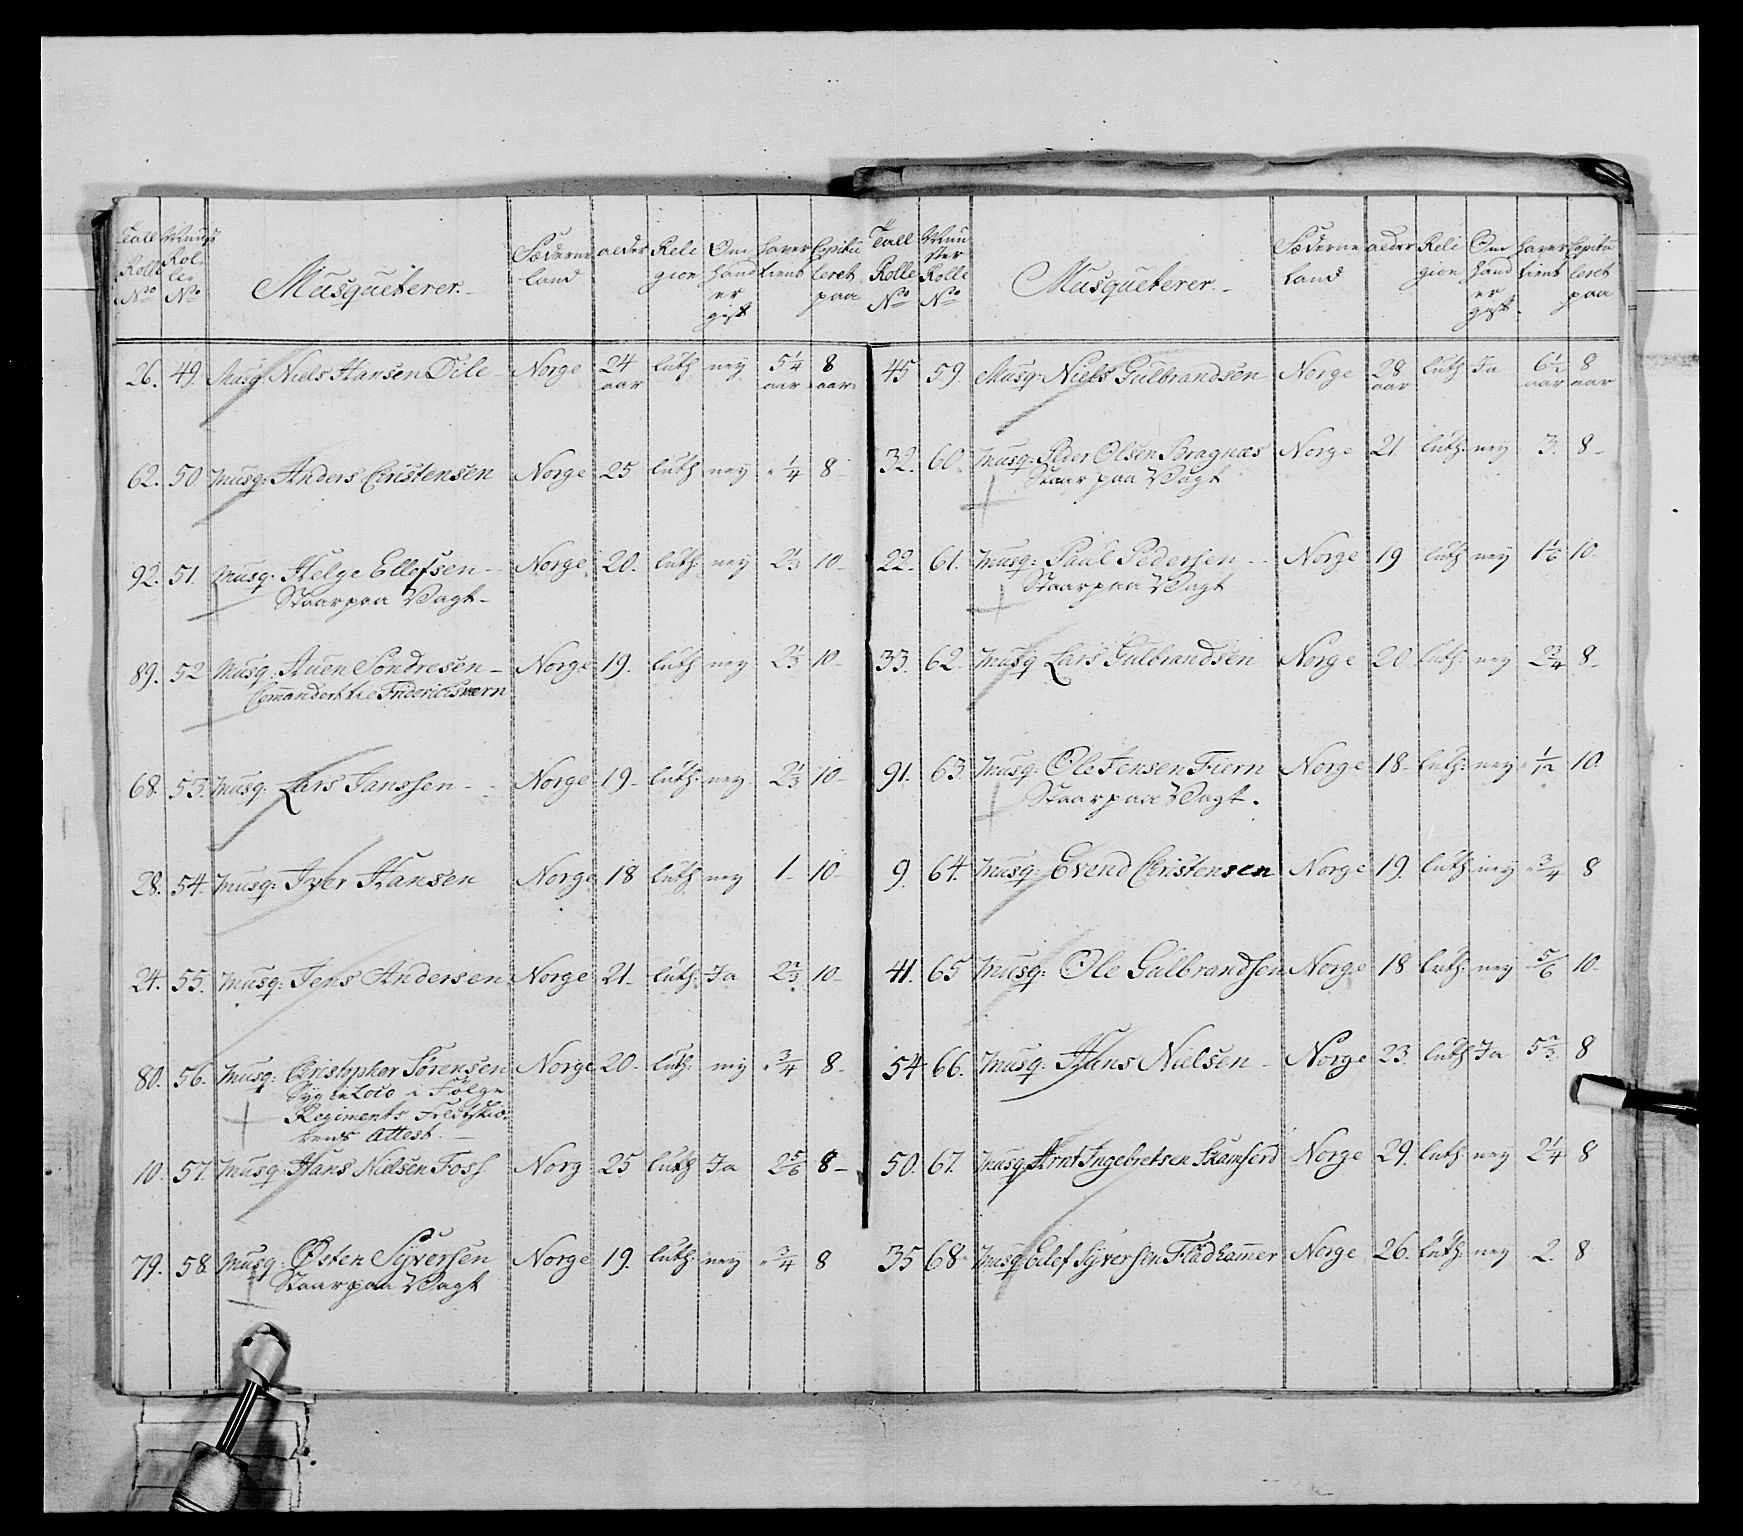 Tall Rolle No | Munst Rol- le No | Musqueterer.- | Fæderne land | alder | Reli gion | Om hand er gift | haver tient | Capitu leret paa
26. 49. Musq. Niels Hansen Dile - Norge 24 aar luth ney 5 1/4 aar 8 aar
62. 50 Musq: Anders Christensen Norge 25 luth ney " 1/4 8-
92. 51. Musq: Helge Ellefsen - Norge 20. luth ney 2 1/3 10-
Staar paa Vagt-
89. 52 Musq: Auen Söndresen - Norge 19. luth ney 2 1/3 10-
Commandert til Friderichsværn
68. 53. Musq: Lars Janssen - Norge 19- luth: ney 2 1/3 10-
28. 54. Musq: Iver Hansen Norge 18 luth ney 1- 10-
24. 55. Musq: Jens Andersen Norge 21- luth: Ja 2 2/3 10-
80. 56. Musq: Christopher Sörensen Norge 20- luth: ney " 3/4 8-
Syg in Loco i Fölge
Regiments Feldtskiæ-
rens Attest. -
10. 57. Musq: Hans Nielsen Foss Norg 25 luth Ja 2 5/6 8-
79. 58. Musq: Østen Syversen Norge 19. luth: ney " 3/4 8
Staar paa Vagt
Tall Rolle No | Mun ster Rolle No | Musqueterer.- | Fæderne land | alder | Reli gion | Om hand er gift. | haver tient | Capitu leret paa
45 59. Musq: Niels Gulbrandsen Norge 28 aar luth Ja 6 1/2 aar 8 aar
32. 60. Musq: Peder Olsen Bragnæs Norge 21 luth: ney 3. 8-
Staar paa Vagt
22. 61. Musq: Paul Pedersen - Norge 19 luth ney 1 1/6 10.
Staar paa Vagt
33. 62. Musq Lars Gulbrandsen Norge 20 luth: ney 2 3/4 8-
91. 63. Musq: Ole Jensen Fiern Norge 18- luth: ney " 1/12 10.
Staar paa Vagt.
9. 64. Musq: Evend Christensen Norge 19. luth: ney " 3/4 8
41. 65 Musq: Ole Gulbrandsen Norge 18 luth: ney 5/6 10-
54 66. Musq: Hans Nielsen - Norge 23. luth Ja 5 2/3 8
50. 67. Musq Arnt Ingebretsen Skamferd Norge 29. luth: ney 2 1/4 8
35 68. Musq: Ellef Syversen Fladhammer Norge 26. luth ney 2. 8